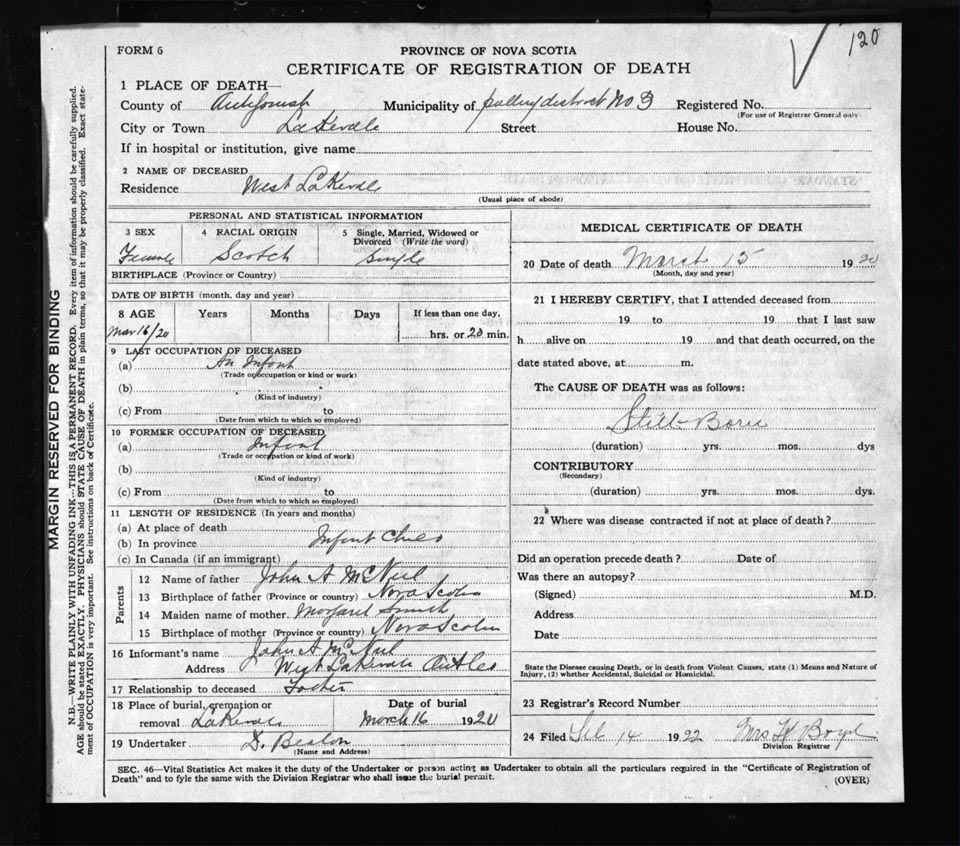 120
FORM 6
PROVINCE OF NOVA SCOTIA
CERTIFICATE OF REGISTRATION OF DEATH
1 PLACE OF DEATH—
County of Antigonish Municipality of polling district No 3 Registered No.
(For use of Registrar General only)
City or Town Lakevale Street House No.
If in hospital or institution, give name
2 NAME OF DECEASED
Residence West Lakevale
(Usual place of abode)
PERSONAL AND STATISTICAL INFORMATION
3 SEX 4 RACIAL ORIGIN 5 Single, Married, Widowed or Divorced (Write the word)
Female Scotch Single
BIRTHPLACE (Province or Country)
DATE OF BIRTH (month, day and year)
8 AGE Years Months Days If less than one day,
Mar 16/20 hrs. or 20 min.
9 LAST OCCUPATION OF DECEASED
(a) An Infant
(Trade or occupation or kind or work)
(b)
(Kind of industry)
(c) From to
(Date from which to which so employed)
10 FORMER OCCUPATION OF DECEASED
(a) Infant
(Trade or occupation or kind of work)
(b)
(Kind of industry)
(c) From to
(Date from which to which so employed)
11 LENGTH OF RESIDENCE (In years and months)
(a) At place of death
(b) In province Infant Child
(c) In Canada (if an immigrant)
Parents
12 Name of father John A McNeil
13 Birthplace of father (Province or country) Nova Scotia
14 Maiden name of mother Margaret Smith
15 Birthplace of mother (Province or country) Nova Scotia
16 Informant's name John A McNeil
Address West Lakevale
17 Relationship to deceased
18 Place of burial, cremation or Date of burial
removal Lakevale March 16 1920
19 Undertaker D. Beaton
(Name and Address)
MEDICAL CERTIFICATE OF DEATH
20 Date of death March 15 1920
(Month, day and year)
21 I HEREBY CERTIFY, that I attended deceased from
19 to 19 that I last saw
h alive on 19 and that death occurred, on the
date stated above, at m.
The CAUSE OF DEATH was as follows:
Still Born
(duration) yrs. mos. dys
CONTRIBUTORY
(Secondary)
(duration) yrs. mos. dys.
22 Where was disease contracted if not at place of death?
Did an operation precede death? Date of
Was there an autopsy?
(Signed) M.D.
Address
Date
State the Disease causing Death, or in death from Violent Causes, state (1) Means and Nature of
Injury, (2) whether Accidental, Suicidal or Homicidal.
23 Registrar's Record Number
24 Filed 14 1922 Mrs H Boyd
Division Registrar
SEC. 46—Vital Statistics Act makes it the duty of the Undertaker or person acting as Undertaker to obtain all the particulars required in the "Certificate of Registration of
Death" and to fyle the same with the Division Registrar who shall issue the burial permit.
(OVER)
MARGIN RESERVED FOR BINDING
N.B.—WRITE PLAINLY WITH UNFADING INK—THIS IS A PERMANENT RECORD. Every item of information should be carefully supplied.
AGE should be stated EXACTLY. PHYSICIANS should STATE CAUSE OF DEATH in plain terms, so that it may be properly classified. Exact state-
ment of OCCUPATION is very important. See instructions on back of Certificate.